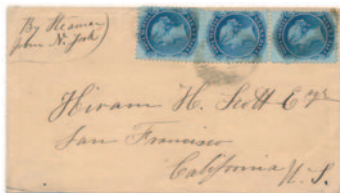 By Steamer
from N. York
Hiram H. Scott Eqr
San Francisco
California U.S.